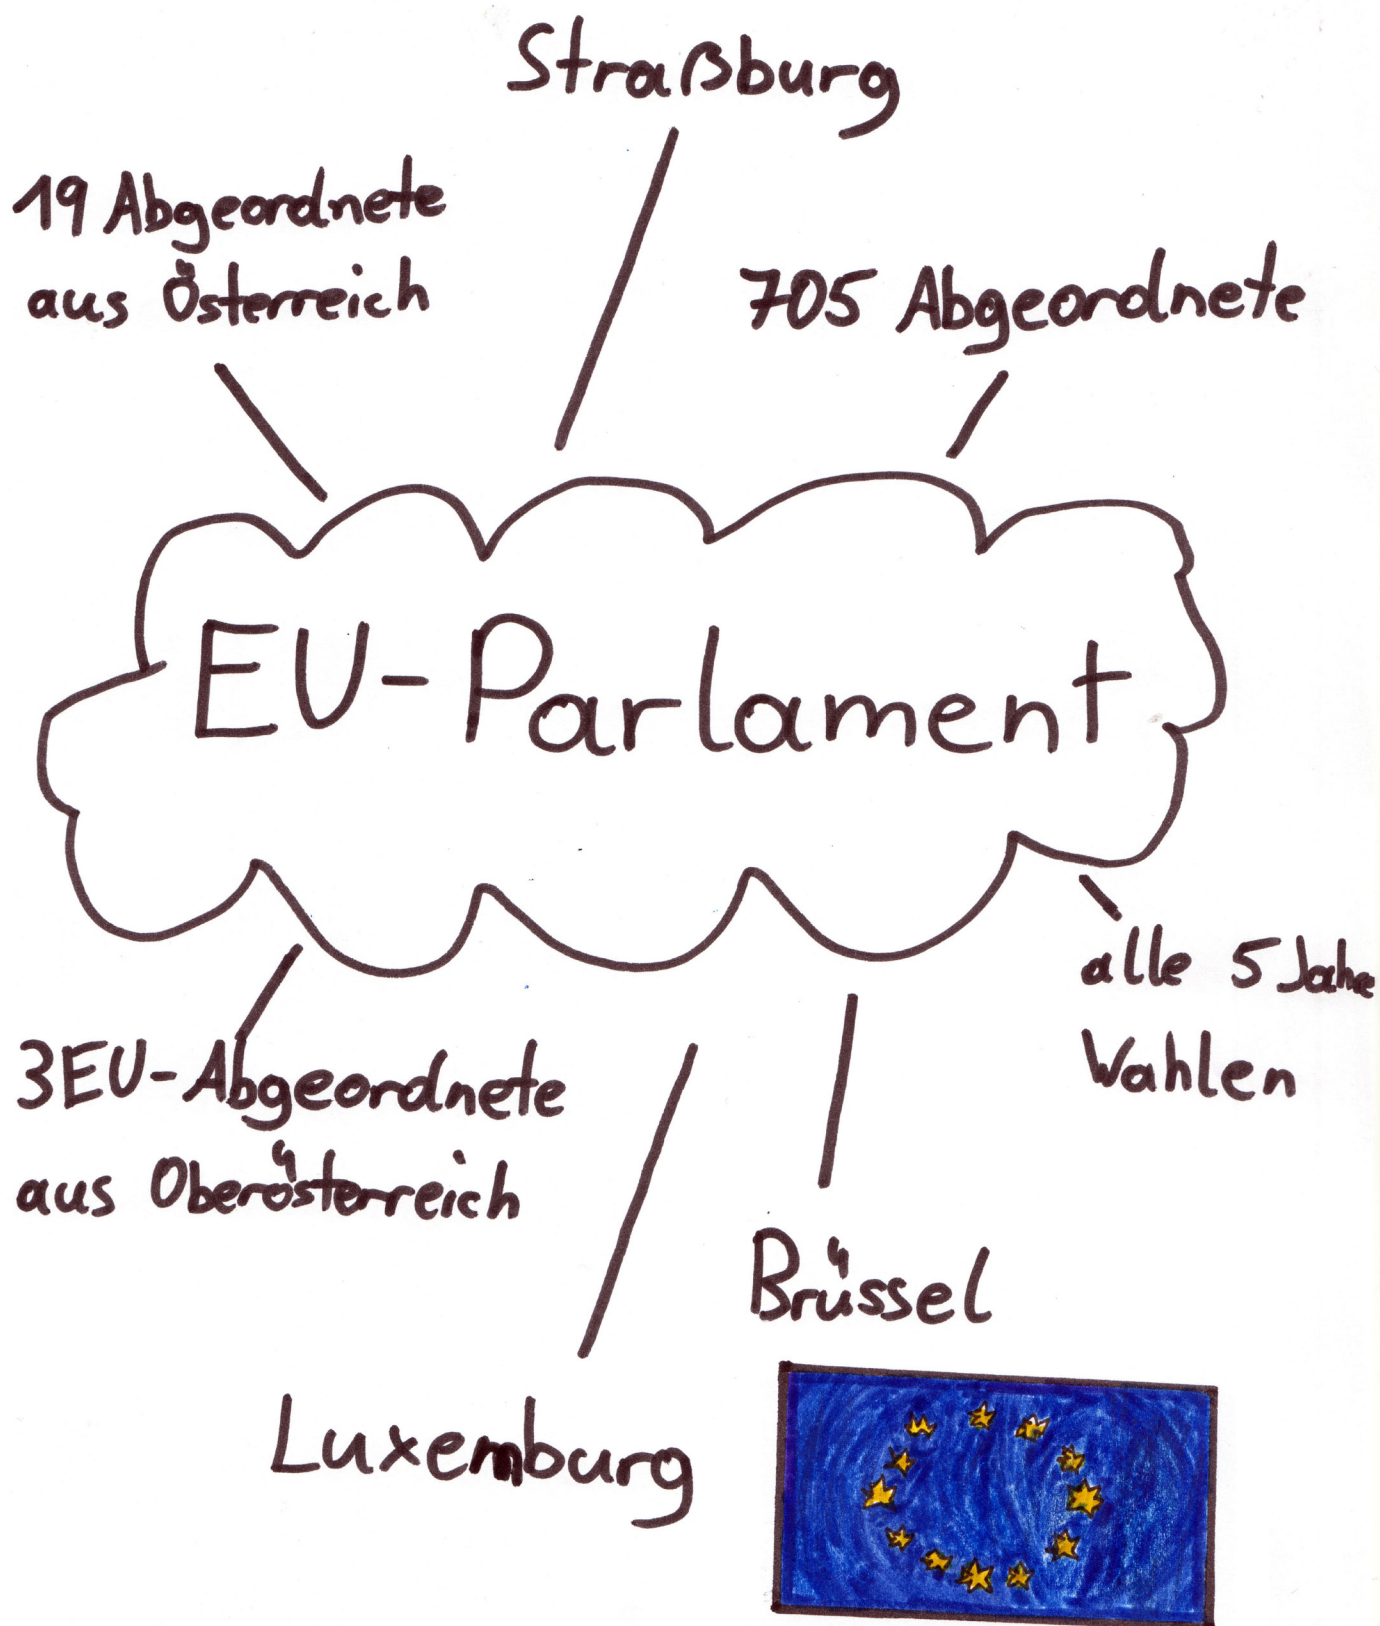 Straßburg
19 Abgeordnete
aus Österreich
705 Abgeordnete
EU-Parlament
alle 5 Jahre
Wahlen
3EU-Abgeordnete
aus Oberösterreich
Brüssel
Luxemburg